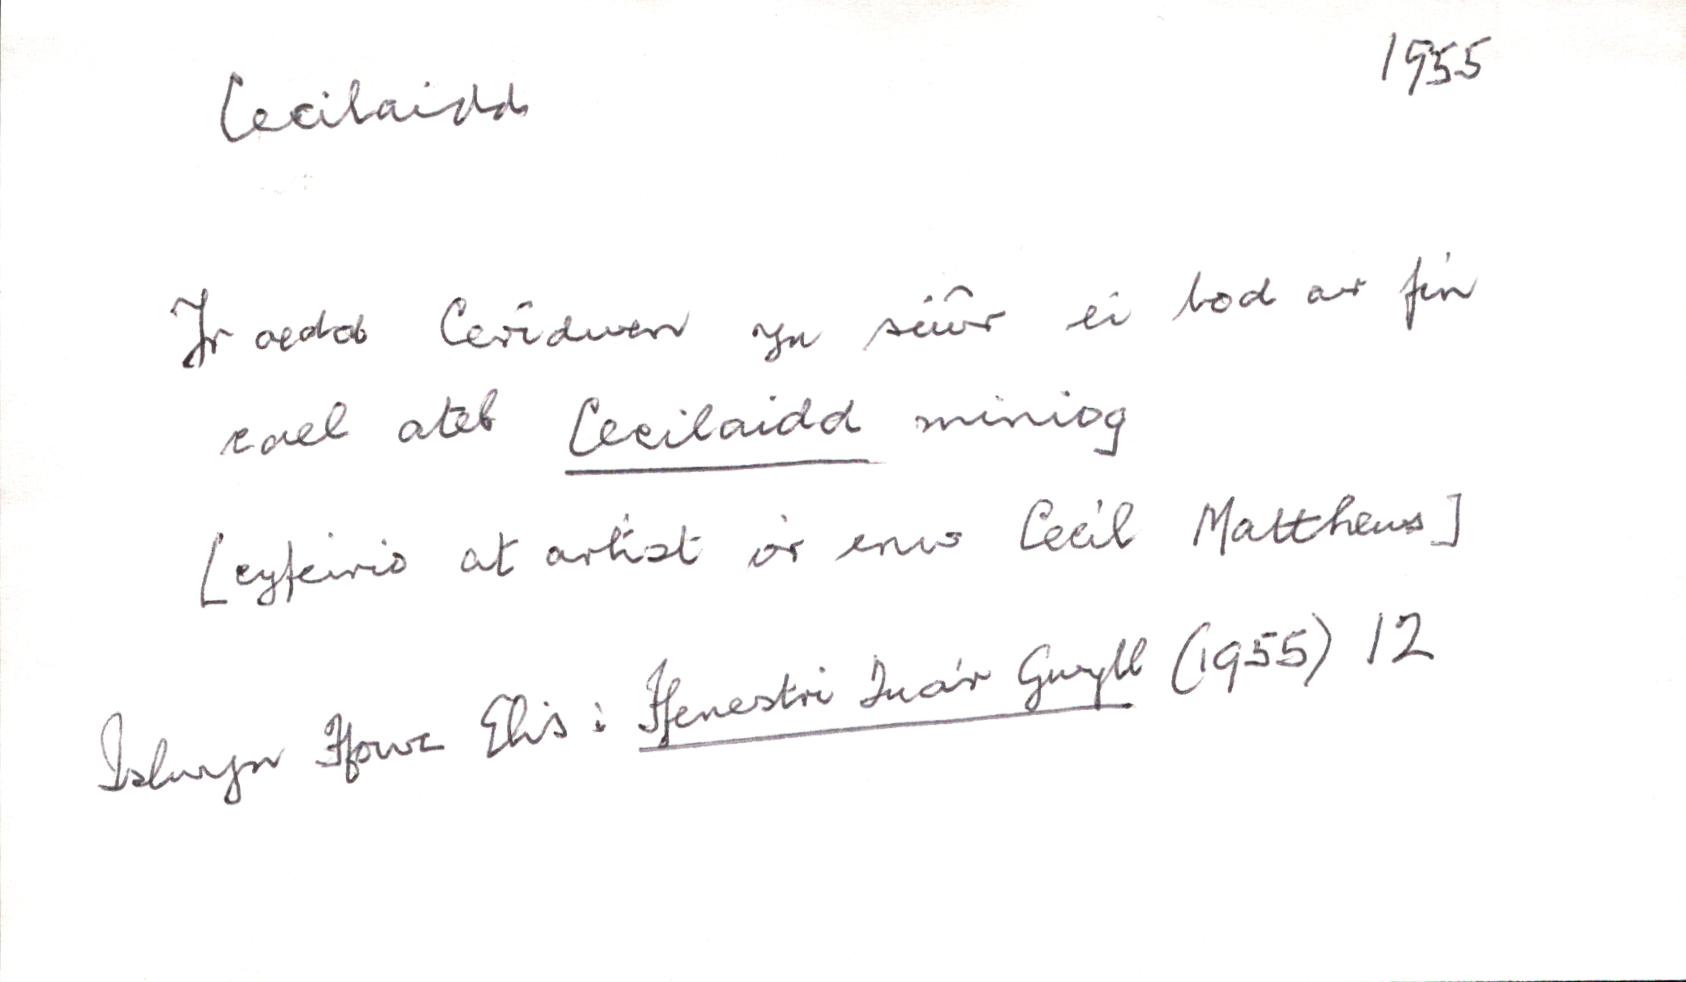 Cecilaidd 1955
Yr oedd Ceridwen yn siŵr ei bod ar fin
cael ateb Cecilaidd miniog
[cyfeirio at artist o'r enw Cecil Matthews]
Islwyn Ffowc Elis : Ffenestri Tua'r Gwyll (1955) 12